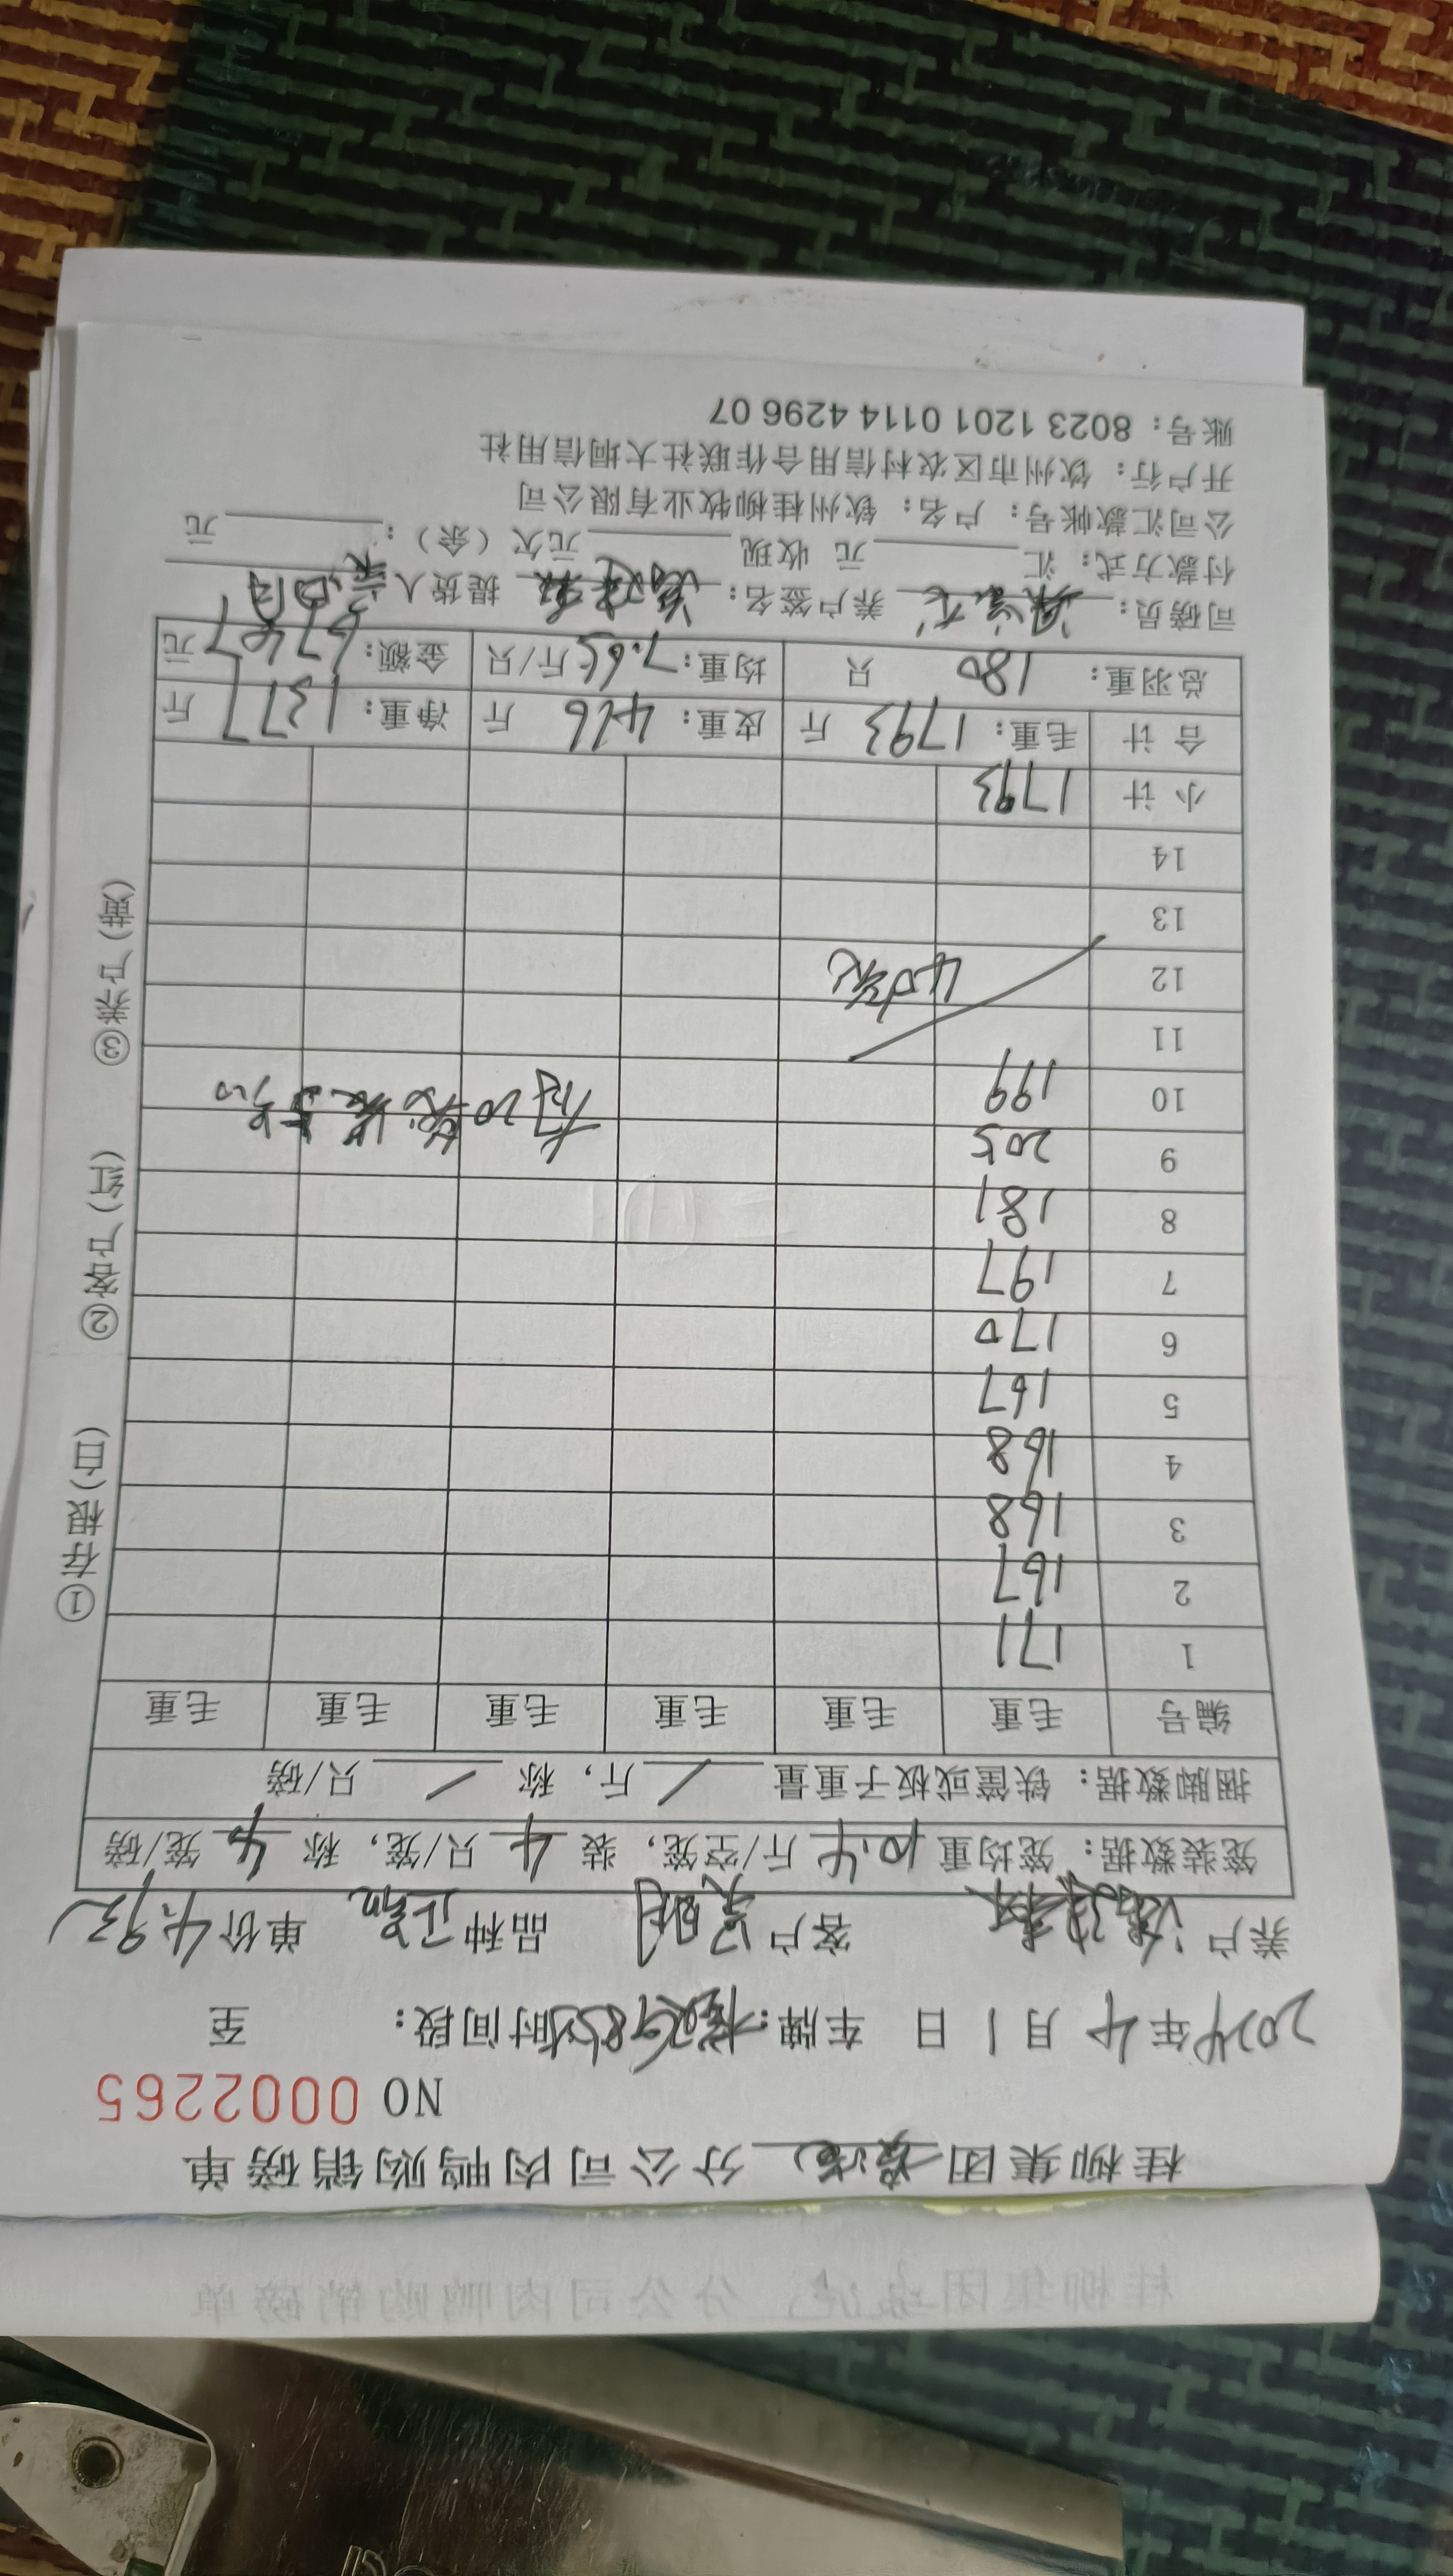 桂柳集团 分公司肉鸭购销磅单
NO 0002265
2024年 4月 1日 车牌: 时间段: 至
养户 客户 吴明 品种 正品 单价 4.9元
笼装数据: 笼均重 10.4 斤/空笼, 装 4 只/笼, 称 4 笼/磅
捆脚数据: 铁筐或板子重量 / 斤, 称 / 只/磅
编号 毛重 毛重 毛重 毛重 毛重 毛重
1 171
2 167
3 168
4 168
5 167
6 170
7 197
8 181
9 205
10 199
11
12 40笼
13
14
小计 1793
合计 毛重: 1793 斤 皮重: 416 斤 净重: 1377 斤
总羽重: 180 只 均重: 7.65 斤/只 金额: 6747 元
司磅员: 养户签名: 提货人
付款方式: 汇 元 收现 元欠(余): 元
公司汇款帐号: 户名: 钦州桂柳牧业有限公司
开户行: 钦州市区农村信用合作联社大垌信用社
账号: 8023 1201 0114 4296 07
①存根(白) ②客户(红) ③养户(黄)
桂柳集团 分公司肉鸭购销磅单